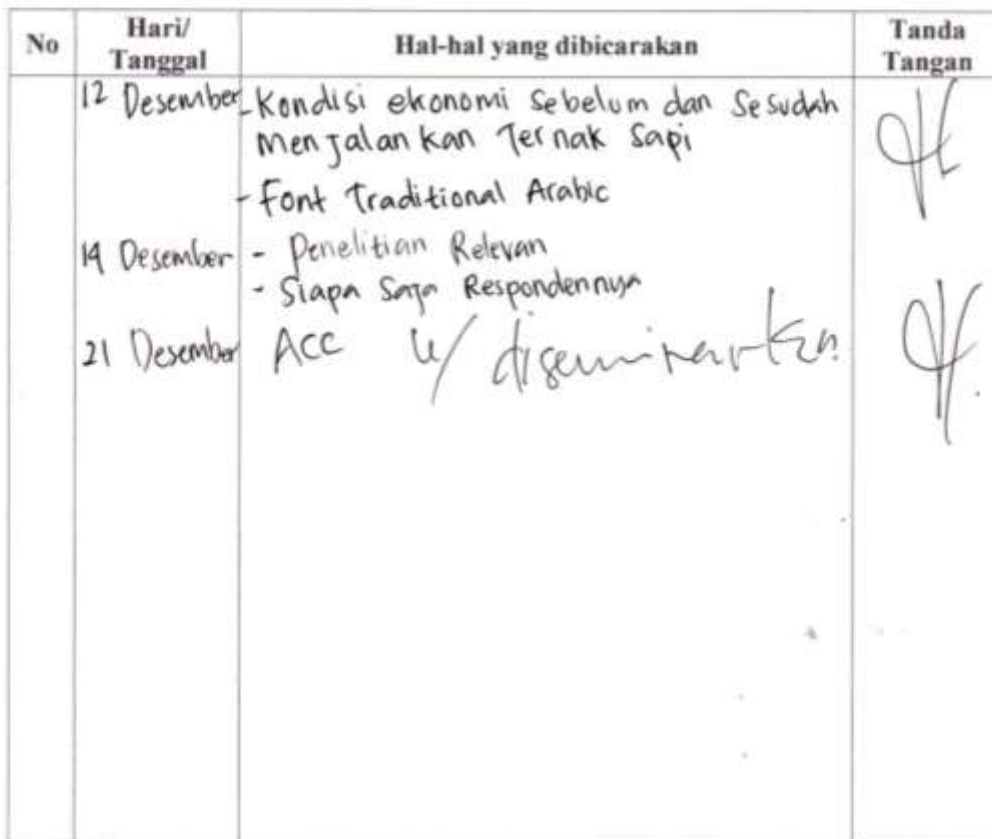 No Hari/ Hal-hal yang dibicarakan Tanda
Tanggal Tangan
12 Desember - Kondisi ekonomi Sebelum dan Sesudah
Menjalankan Ternak Sapi
- Font Traditional Arabic
14 Desember - Penelitian Relevan
- Siapa Saja Respondennya
21 Desember ACC u/ diseminarkan